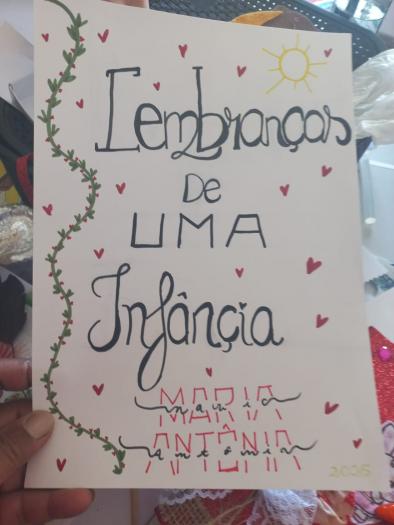 Lembranças
De
UMA
Infânçia
MARIA
maria
ANTÔNIA
antônia
2025